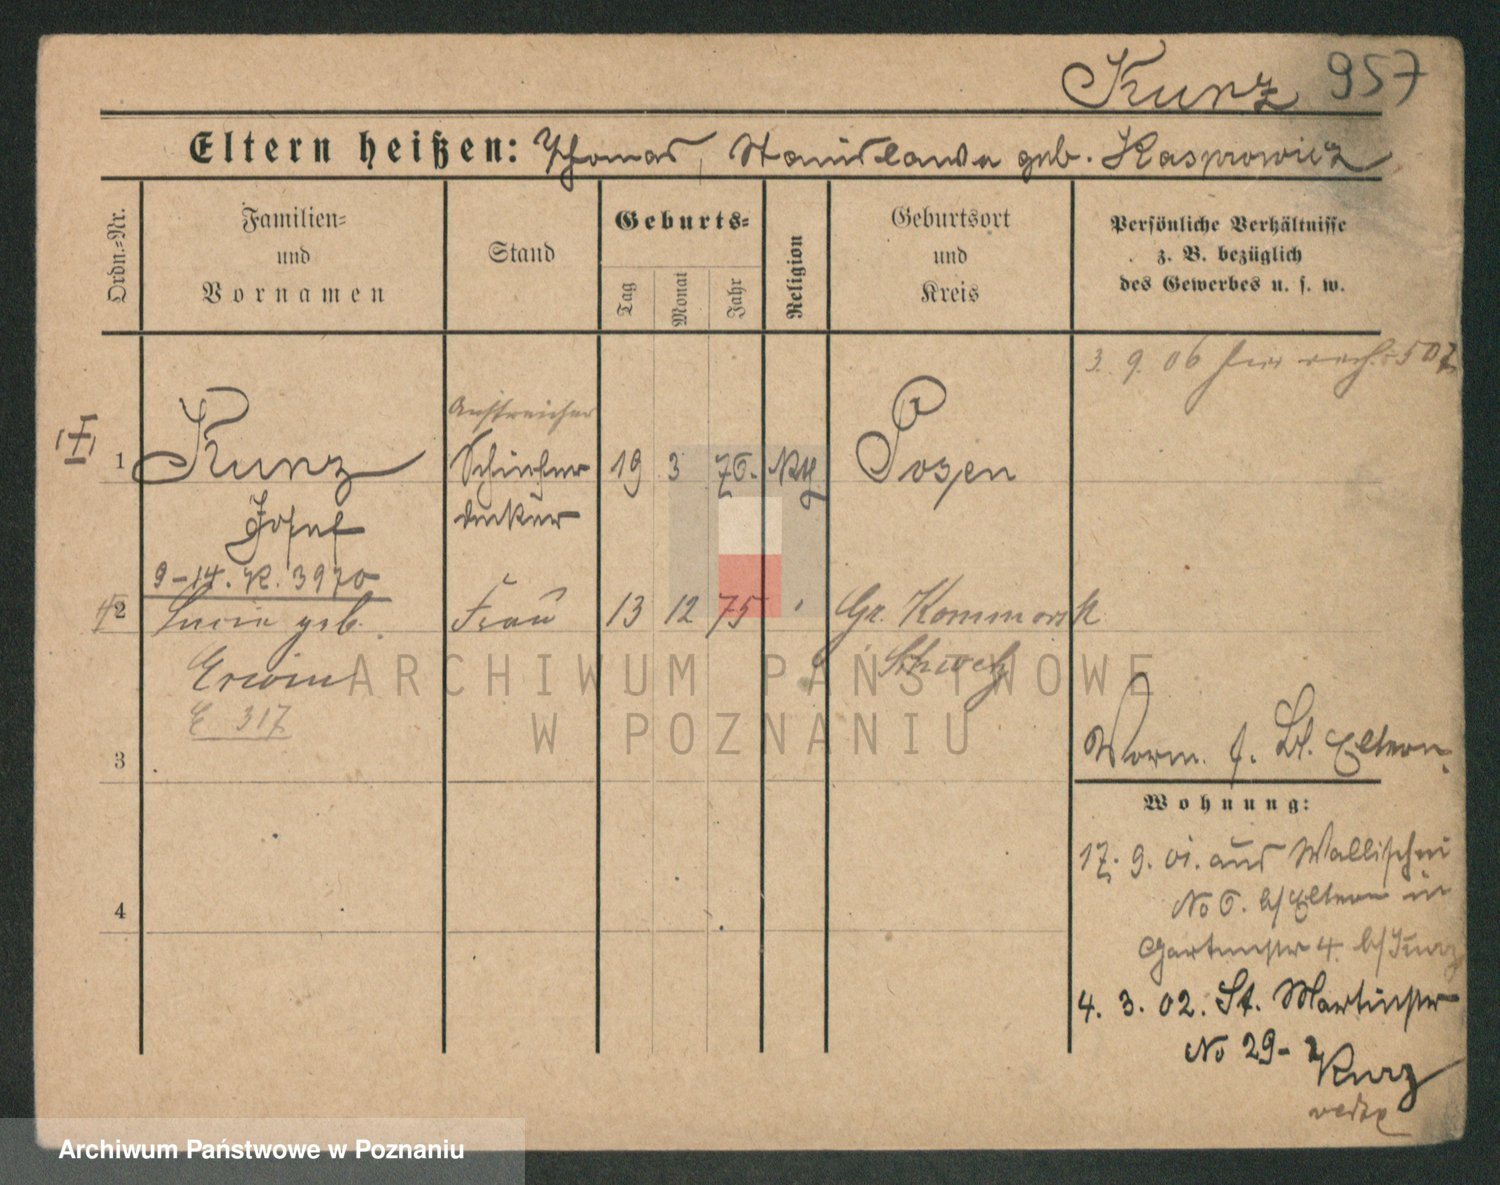 Kunz 957
Eltern heißen: Thomas, Stanislawa geb. Kasprowicz
Ordn.-Nr.
Familien-
und
Vornamen
Stand
Geburts-
Tag
Monat
Jahr
Religion
Geburtsort
und
Kreis
Persönliche Verhältnisse
z. B. bezüglich
des Gewerbes u. s. w.
3. 9. 06
Anstreicher
I
1 Kunz 19 3 76. Kth Posen
Josef
9-14. K. 3970
2 geb. Frau 13 12 75 Gr. Kommorsk
Erwin Schwetz
E 317
3
Eltern
Wohnung:
17. 9. 01. aus Wallischei
No 6. b/Eltern in
Gartenstr 4. b/
4. 3. 02. St. Martinstr
No 29-
4
ARCHIWUM PAŃSTWOWE
W POZNANIU
Archiwum Państwowe w Poznaniu